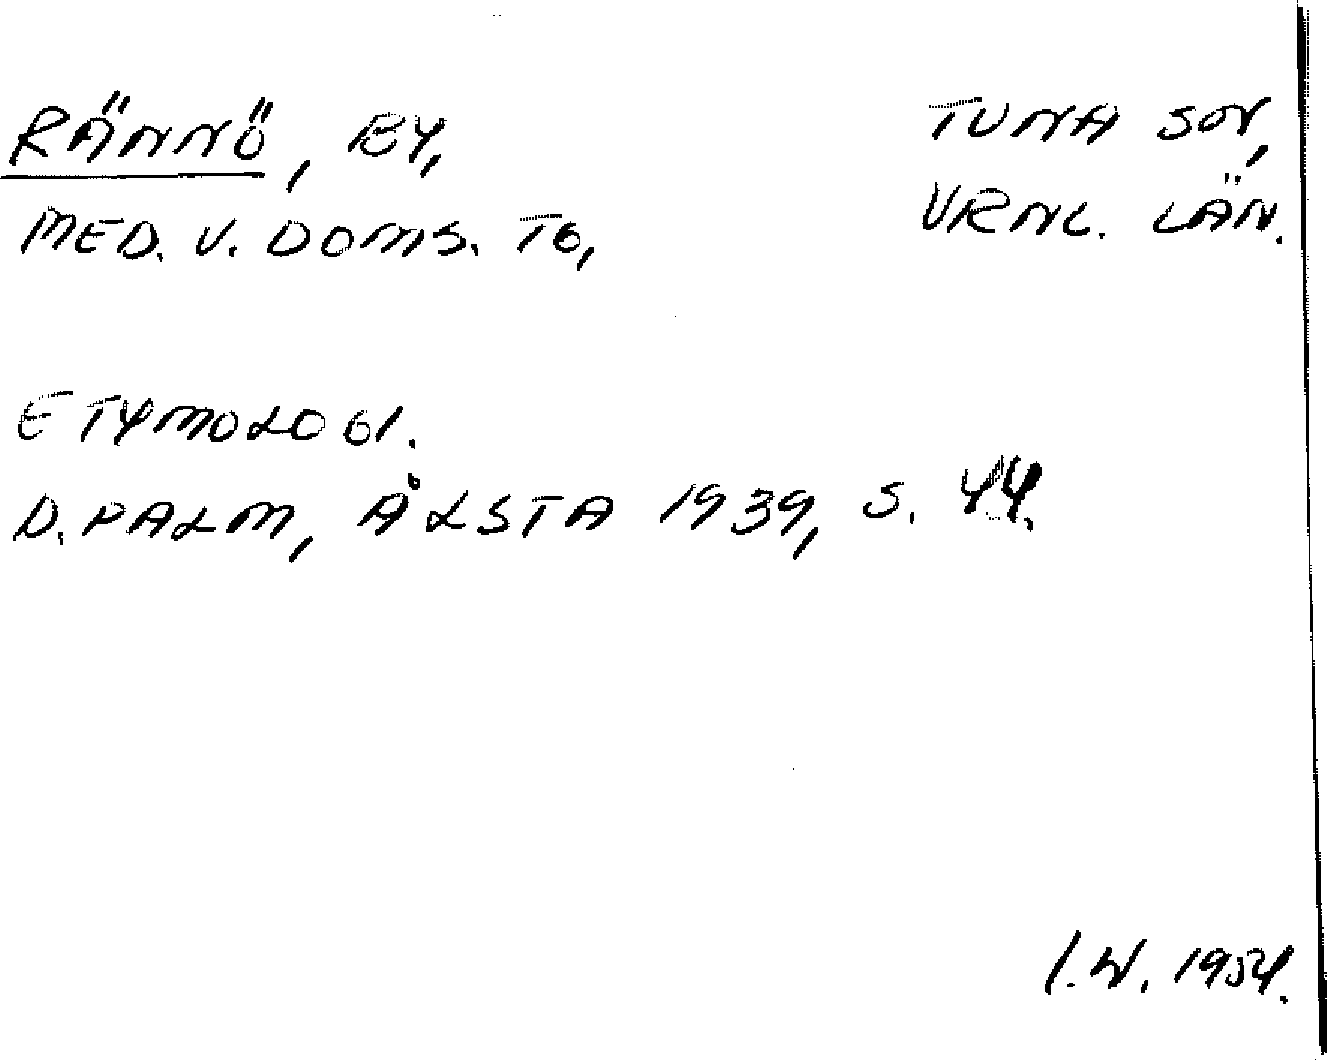 RÄNNÖ, BY,
TUNA SON,
MED. V. DOMS. TG,
VRNL. LÄN.
ETYMOLOGI.
D. PALM, ÅLSTA 1939, S. 44.
I.W. 1954.